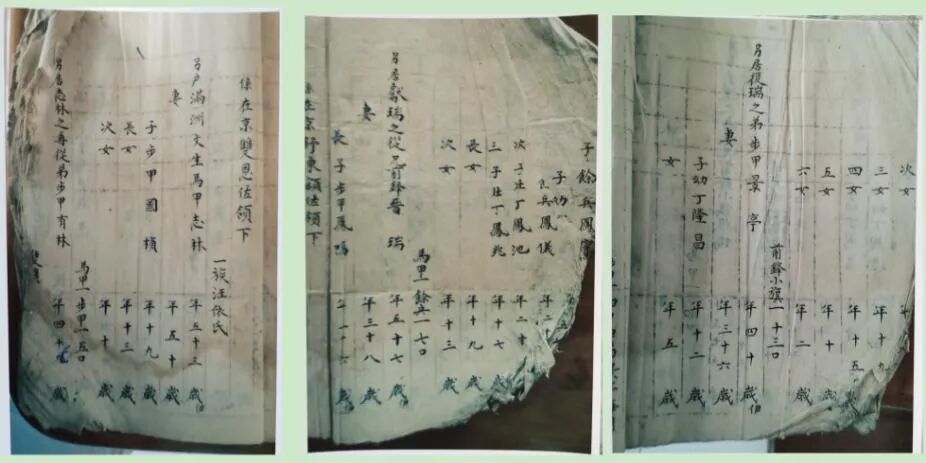 一族汪依氏
係在京雙恩佐領下
另户滿洲文生馬甲志林 年五十三歲
妻 年五十歲
子步甲國楨 年十九歲
長女 年十三歲
次女 年十歲
馬甲一步甲一五口
另居志林之再從弟步甲有林 年四十歲
子餘兵鳳
兵鳳儀 年二
次子壯丁鳳池 年二十歲
三子壯丁鳳兆 年十七歲
長女 年十九歲
次女 年十三歲
馬甲一餘兵一七口
另居獻瑞之從兄前鋒晉瑞 年五十七歲
妻 年三十八歲
長子步甲鳳鳴
係在京 佐領下
次女 年
三女 年十
四女 年十五
五女 年十歲
六女 年二歲
前鋒小旗一十三口
另居復瑞之弟步甲景亭 年四十歲
妻 年三十六歲
子幼丁隆昌 年十二歲
女 年五歲